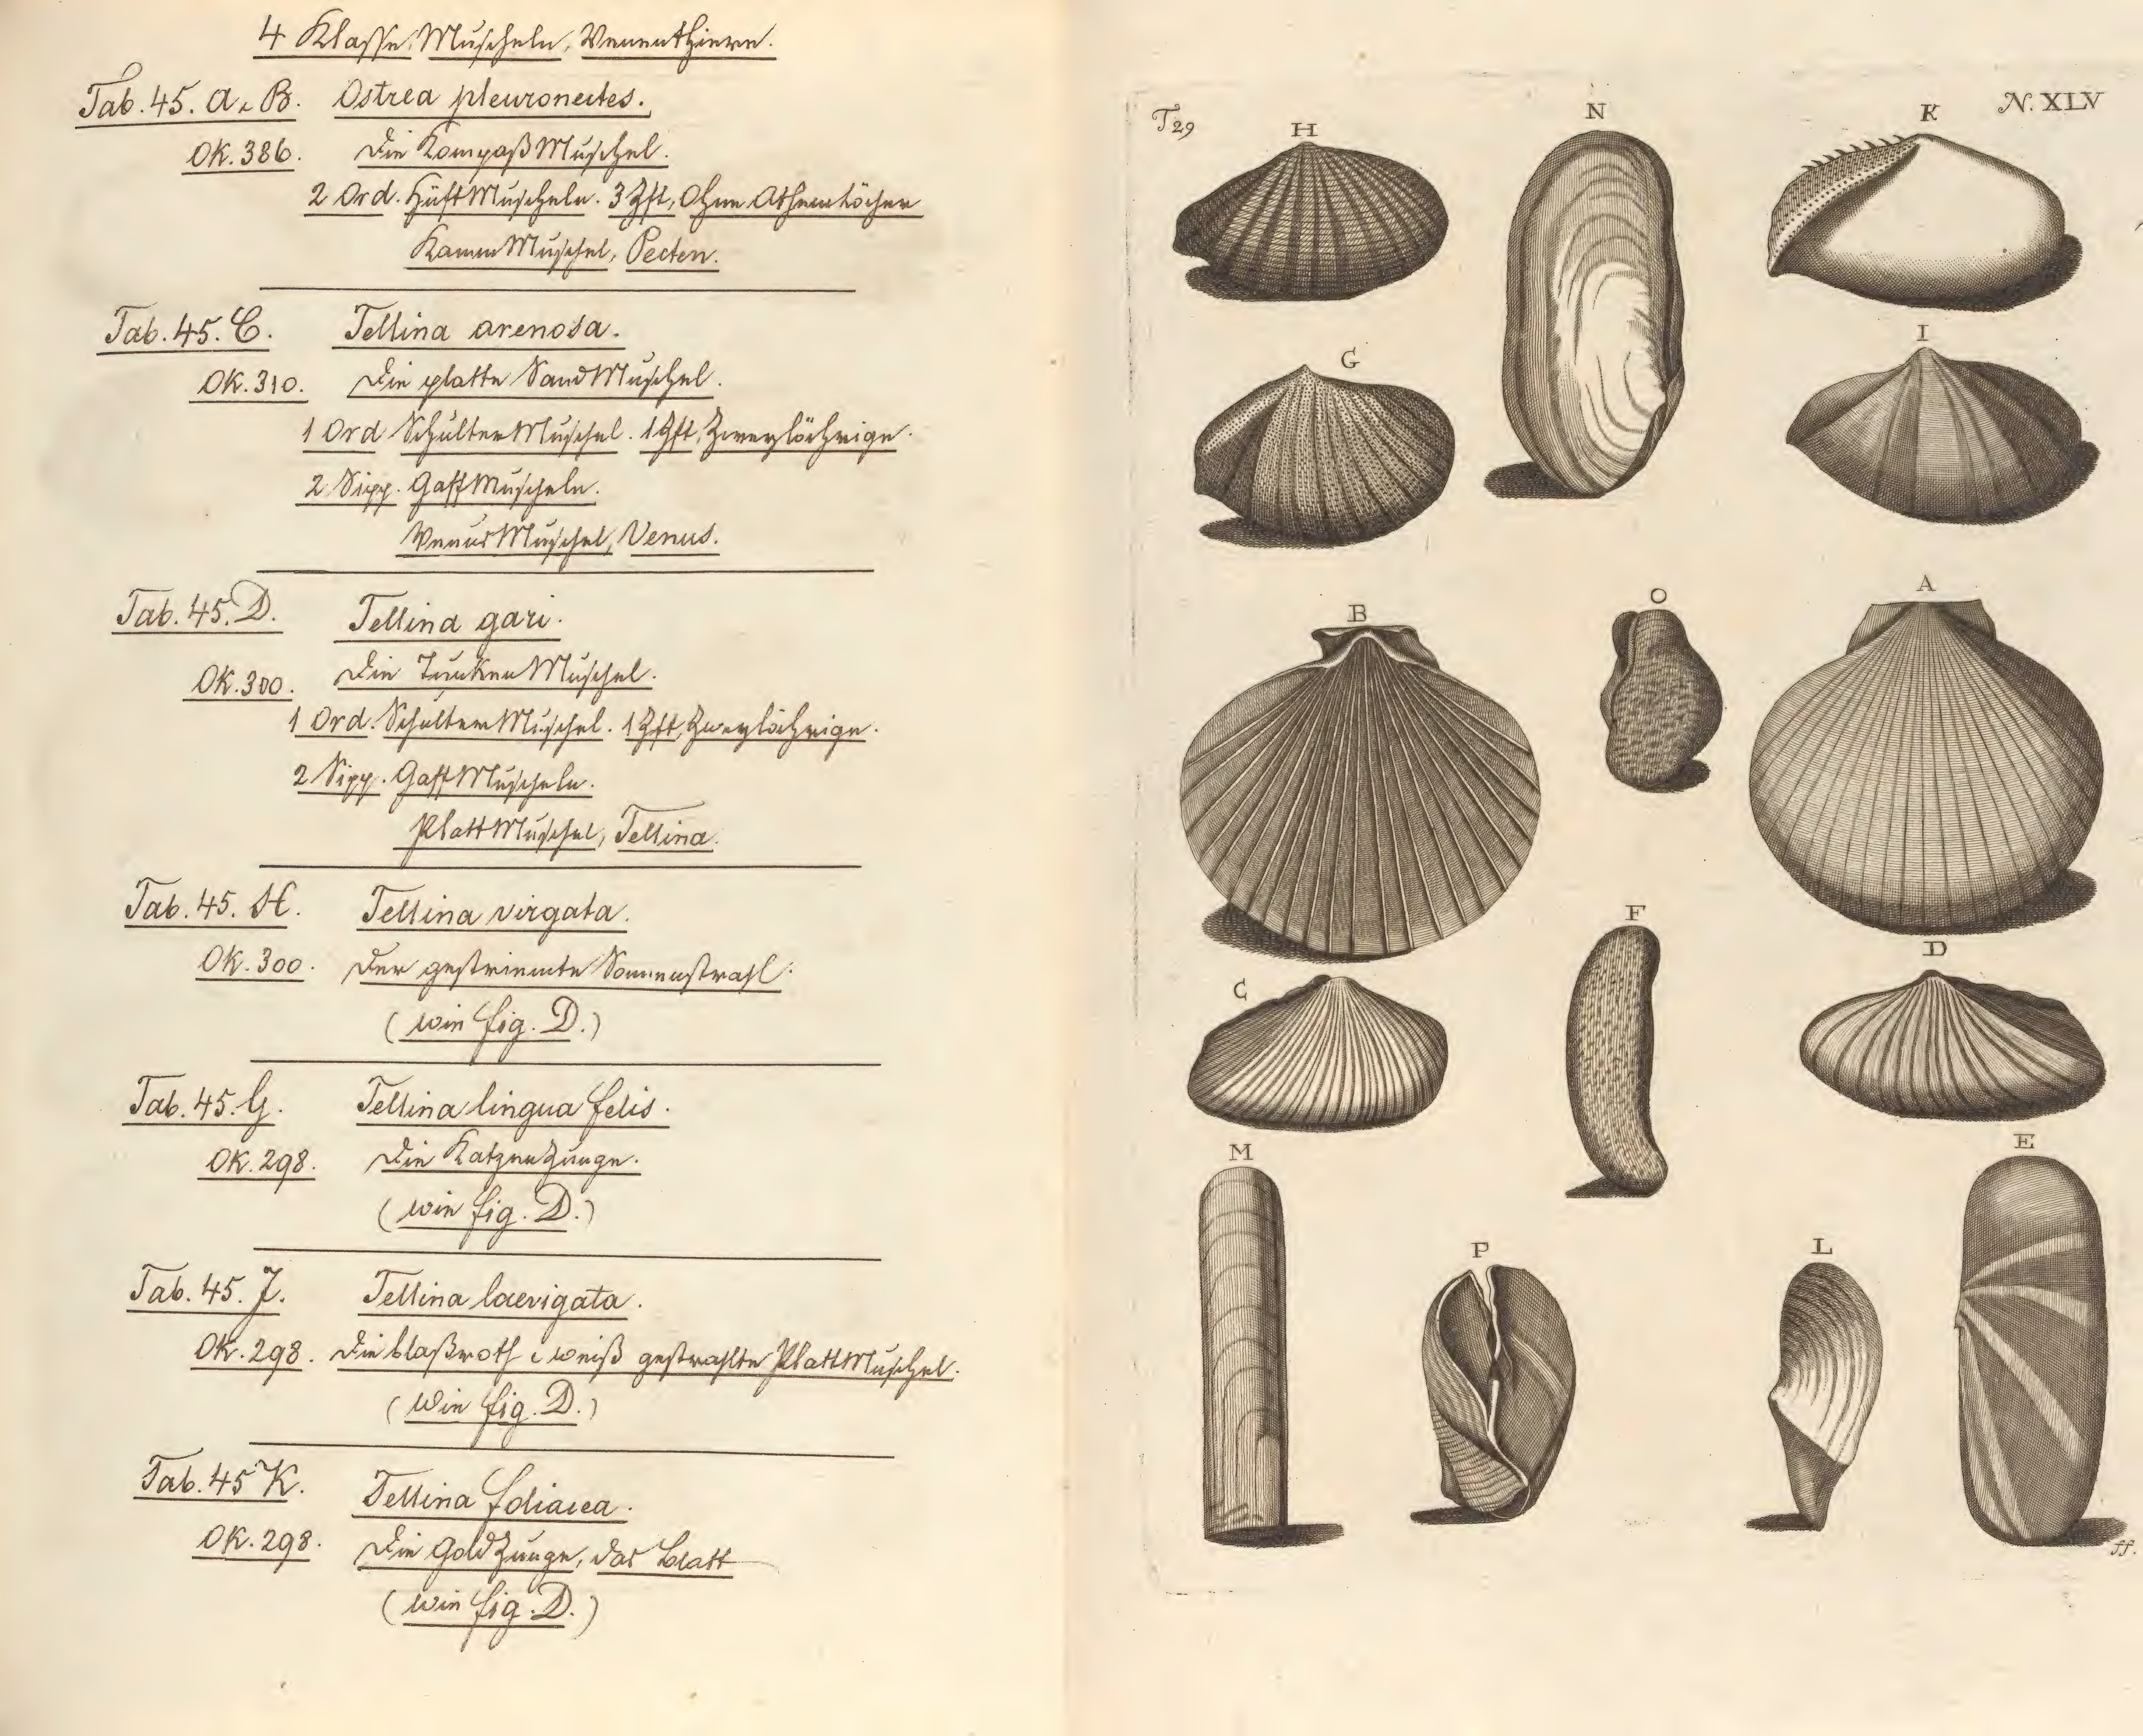 4 Klasse. Muscheln, Venenthiere.
Tab. 45. A. B. Ostrea pleuronectes.
OK. 386. Die KompaßMuschel.
2 Ord. HüftMuscheln. 3 Zft, Ohne Athemlöcher
KammMuschel, Pecten.
Tab. 45. C. Tellina arenosa.
OK. 310. Die platte SandMuschel.
1 Ord SchulterMuschel. 1 Zft, Zweylöchrige.
2 Sipp. GaffMuscheln.
VenusMuschel, Venus.
Tab. 45. D. Tellina gari.
OK. 300. Die TunkenMuschel.
1 Ord. SchulterMuschel. 1 Zft, Zweylöchrige.
2 Sipp. GaffMuscheln.
PlattMuschel, Tellina.
Tab. 45. H. Tellina virgata.
OK. 300. Der gestriemte Sonnenstrahl.
(wie fig. D.)
Tab. 45. G. Tellina lingua felis.
OK. 298. Die KatzenZunge.
(wie fig. D.)
Tab. 45. J. Tellina laevigata.
OK. 298. Die blaßroth & weiß gestrahlte PlattMuschel.
(wie fig. D.)
Tab. 45 K. Tellina foliacea.
OK. 298. Die GoldZunge, das Blatt
(wie fig. D.)
T29 H N K N. XLV
G I
B O A
F
C D
M E
P L
ff.